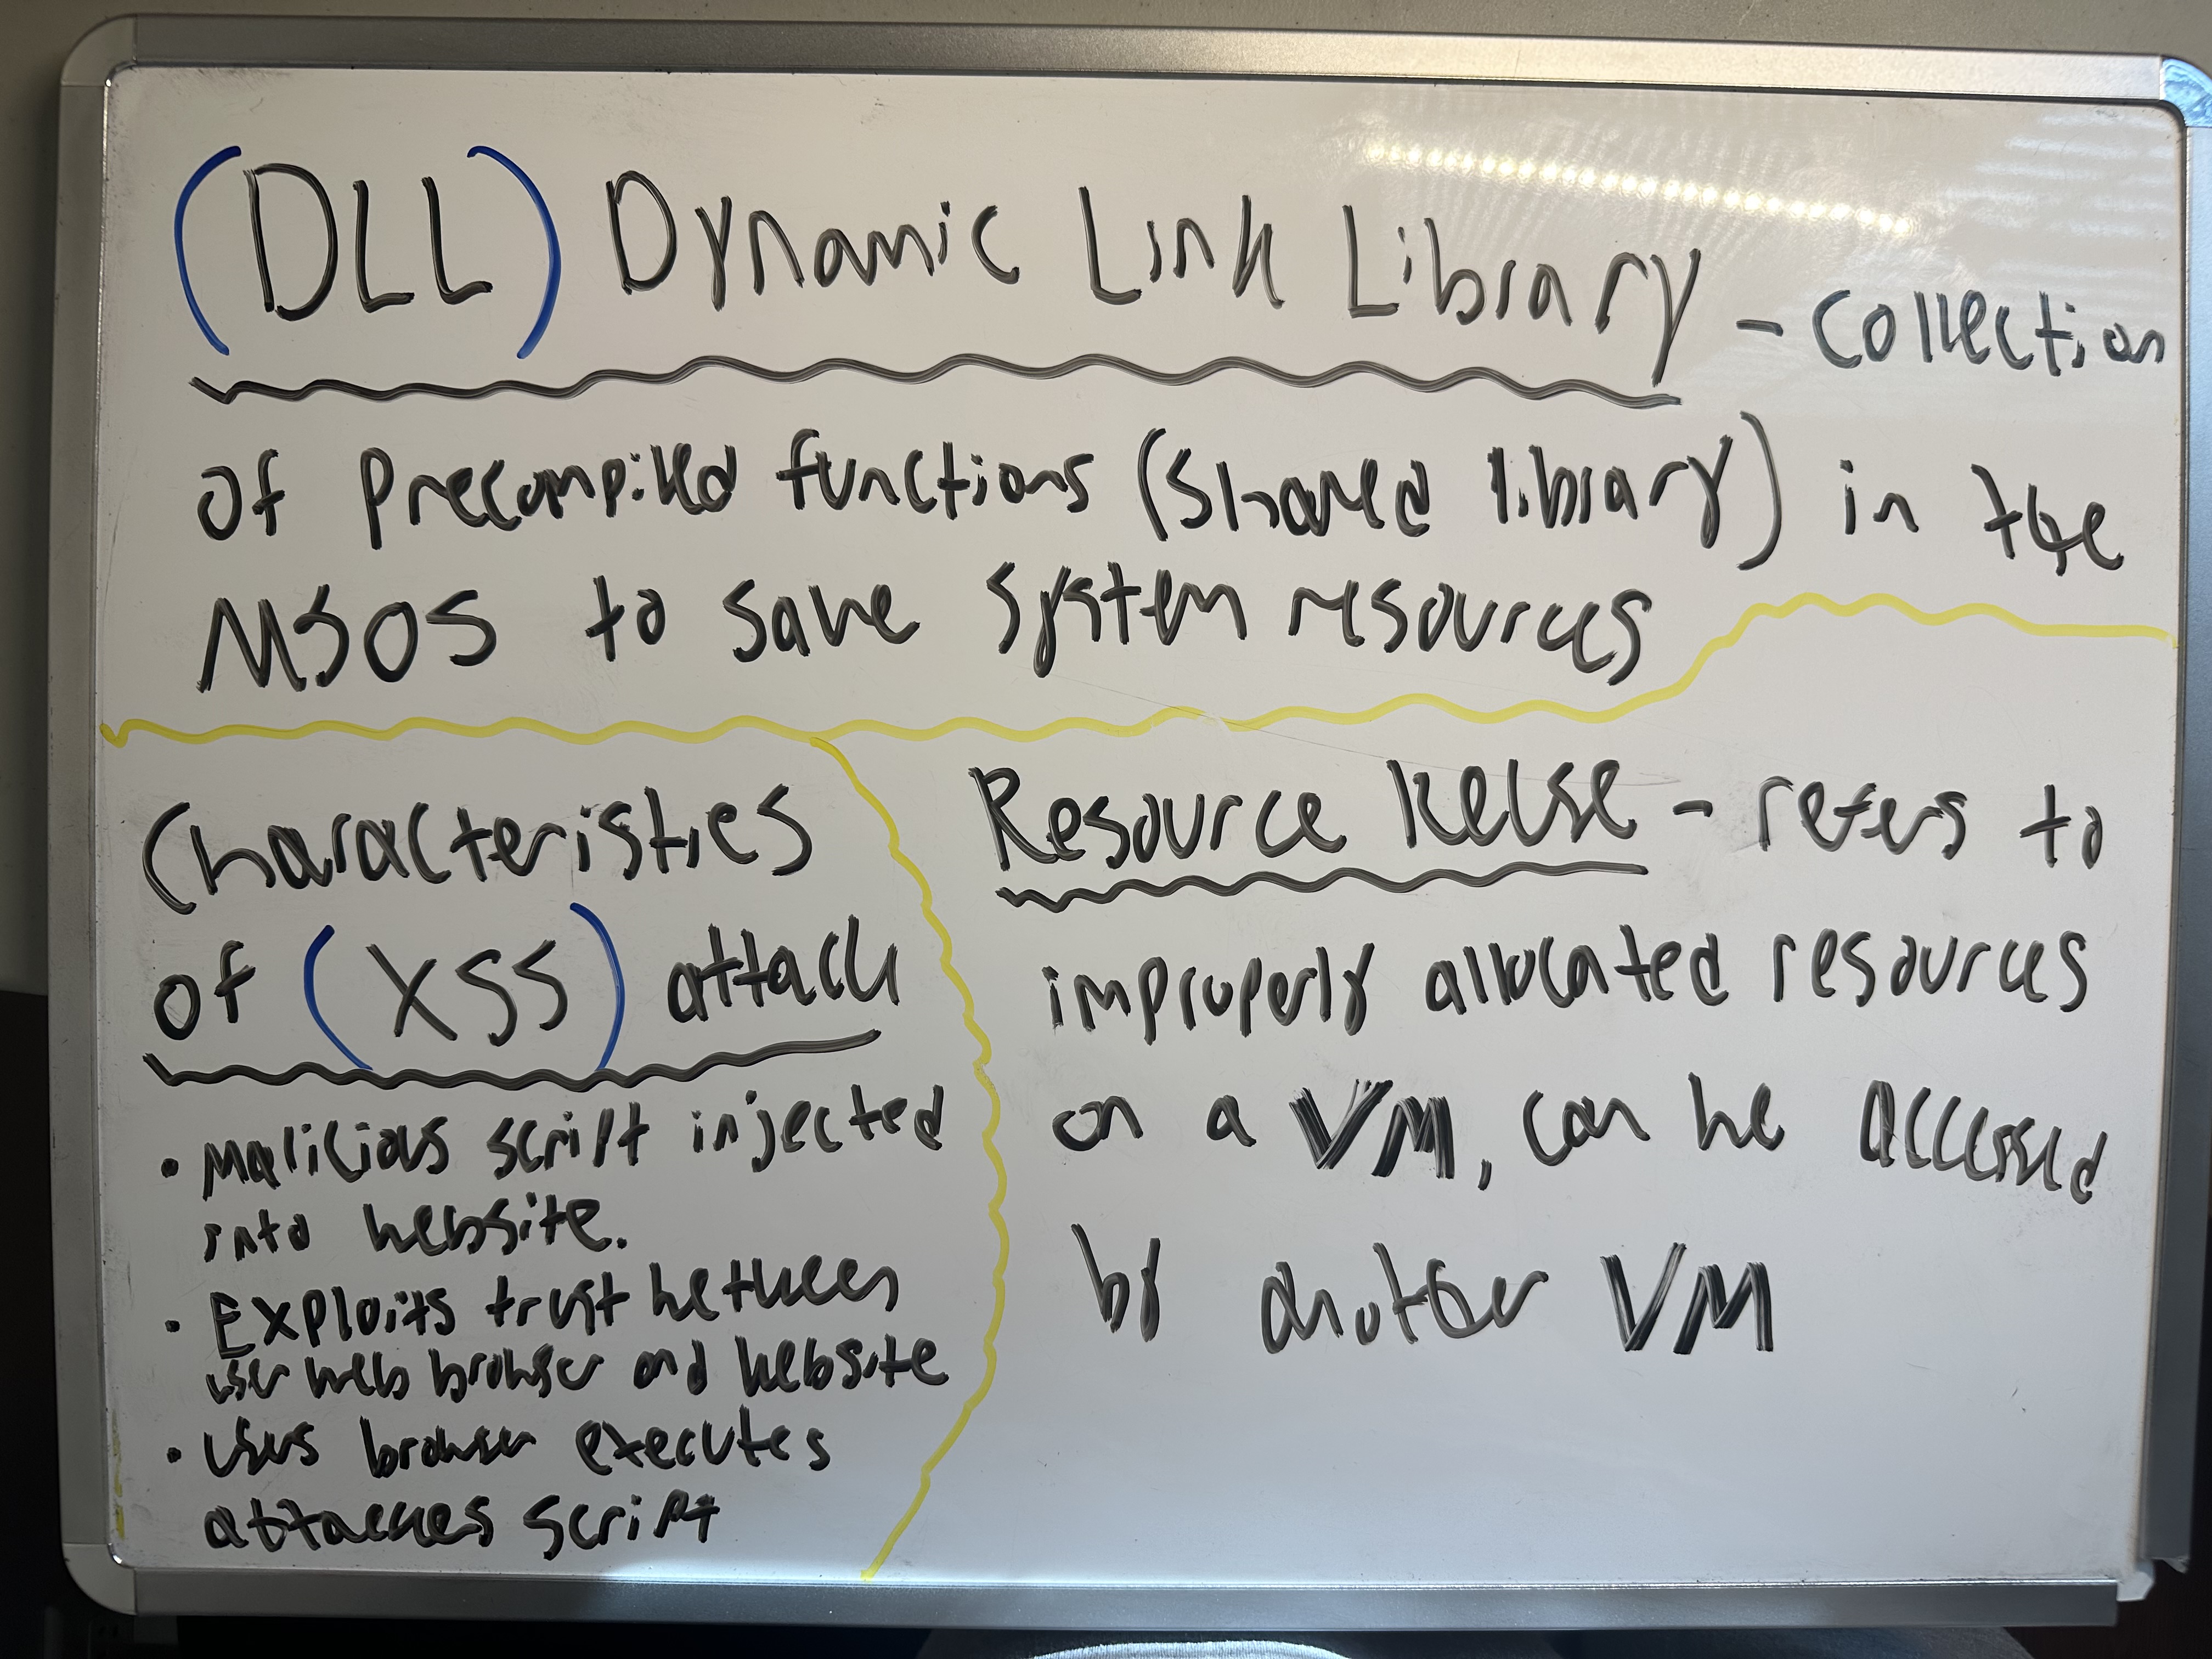 (DLL) Dynamic Link Library - Collection
of Precompiled functions (Shared library) in the
MSOS to save system resources
Characteristics
of (XSS) attack
• Malicious script injected
into website.
• Exploits trust between
user web browser and website
• Users browser executes
attackers script
Resource Reuse - refers to
improperly allocated resources
on a VM, can be accessed
by another VM